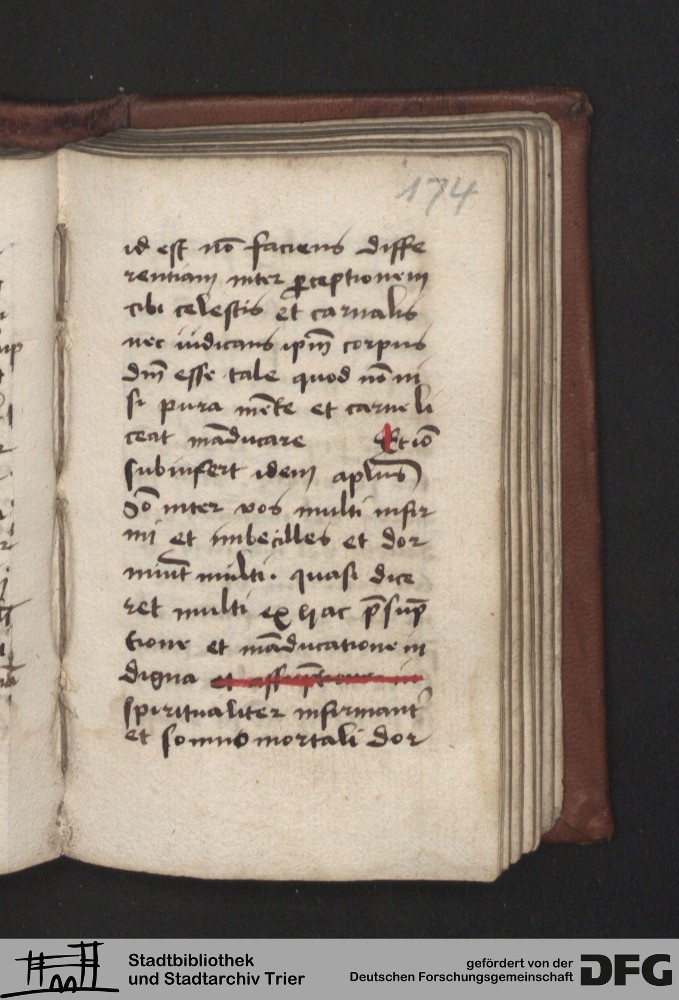 174
id est nō faciens diffe
rentiam inter ꝑceptionem
cibi celestis et carnalis
nec iudicans ipm̄ corpus
dm̄ esse tale quod non ni
si pura mēte et carne li
ceat māducare
subinfert idem aplus̄
Iō inter vos multi infir
mi et imbecilles et dor
miūt multi. quasi dice
ret multi ex hac p̄sūp
tione et māducatione in
digna et assūptione in
spiritualiter infirmant᷑
et somno mortali dor
Stadtbibliothek
und Stadtarchiv Trier
gefördert von der
Deutschen Forschungsgemeinschaft
DFG